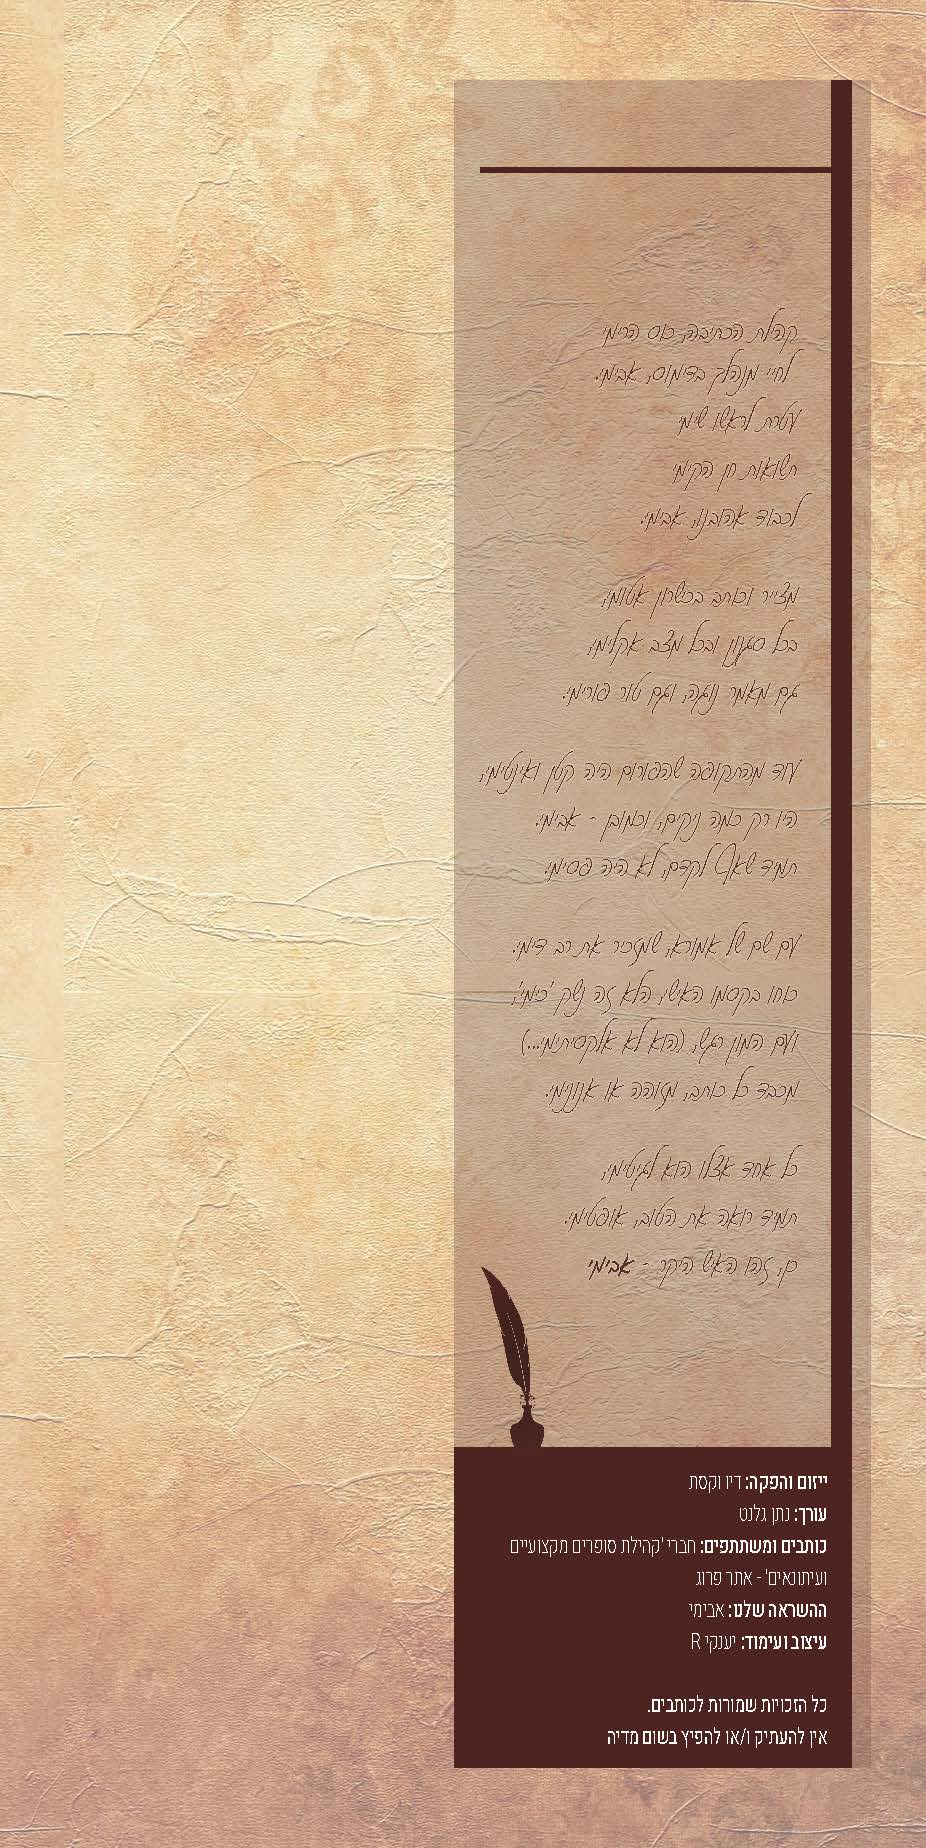 קהילת הכתיבה, כאס הרימי
לחיי מנהלק בדימוס, אבימי.
עטרת לראשו שימי
תשואות חן הקימי
לכבוד אהובנו, אבימי.
מצייר וכותב בכשרון אטומי,
בכל סגנון ובכל מצב אקלימי,
גם מאמר נוגה, וגם טור פורימי.
עוד מהתקופה שהפורום היה קטן ואינטימי,
היו רק כמה ניקים, וכמובן - אבימי.
תמיד שאף לקדם, לא היה פסימי.
עם שם של אמורא, שמזכיר את רב דימי.
כוחו בקסמו האישי, הלא זה נשק 'כימי',
ועם המון רגש, (הוא לא אלקסיתימי...)
מכבד כל כותב, מזוהה או אנונימי.
כל אחד אצלו הוא לגיטימי,
תמיד רואה את הטוב, אופטימי.
כן, זהו האיש היקר - אבימי
ייזום והפקה: דיו וקסת
עורך: נתן גלנט
כותבים ומשתתפים: חברי 'קהילת סופרים מקצועיים
ועיתונאים' - אתר פרוג
ההשראה שלנו: אבימי
עיצוב ועימוד: יענקי R
כל הזכויות שמורות לכותבים.
אין להעתיק ו/או להפיץ בשום מדיה